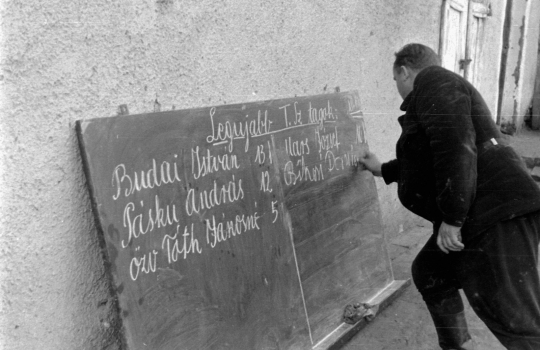 Legujabb T.Sz tagok:
Budai István 13
Pásku András 12
özv Tóth Jánosné 5
József
Bihari